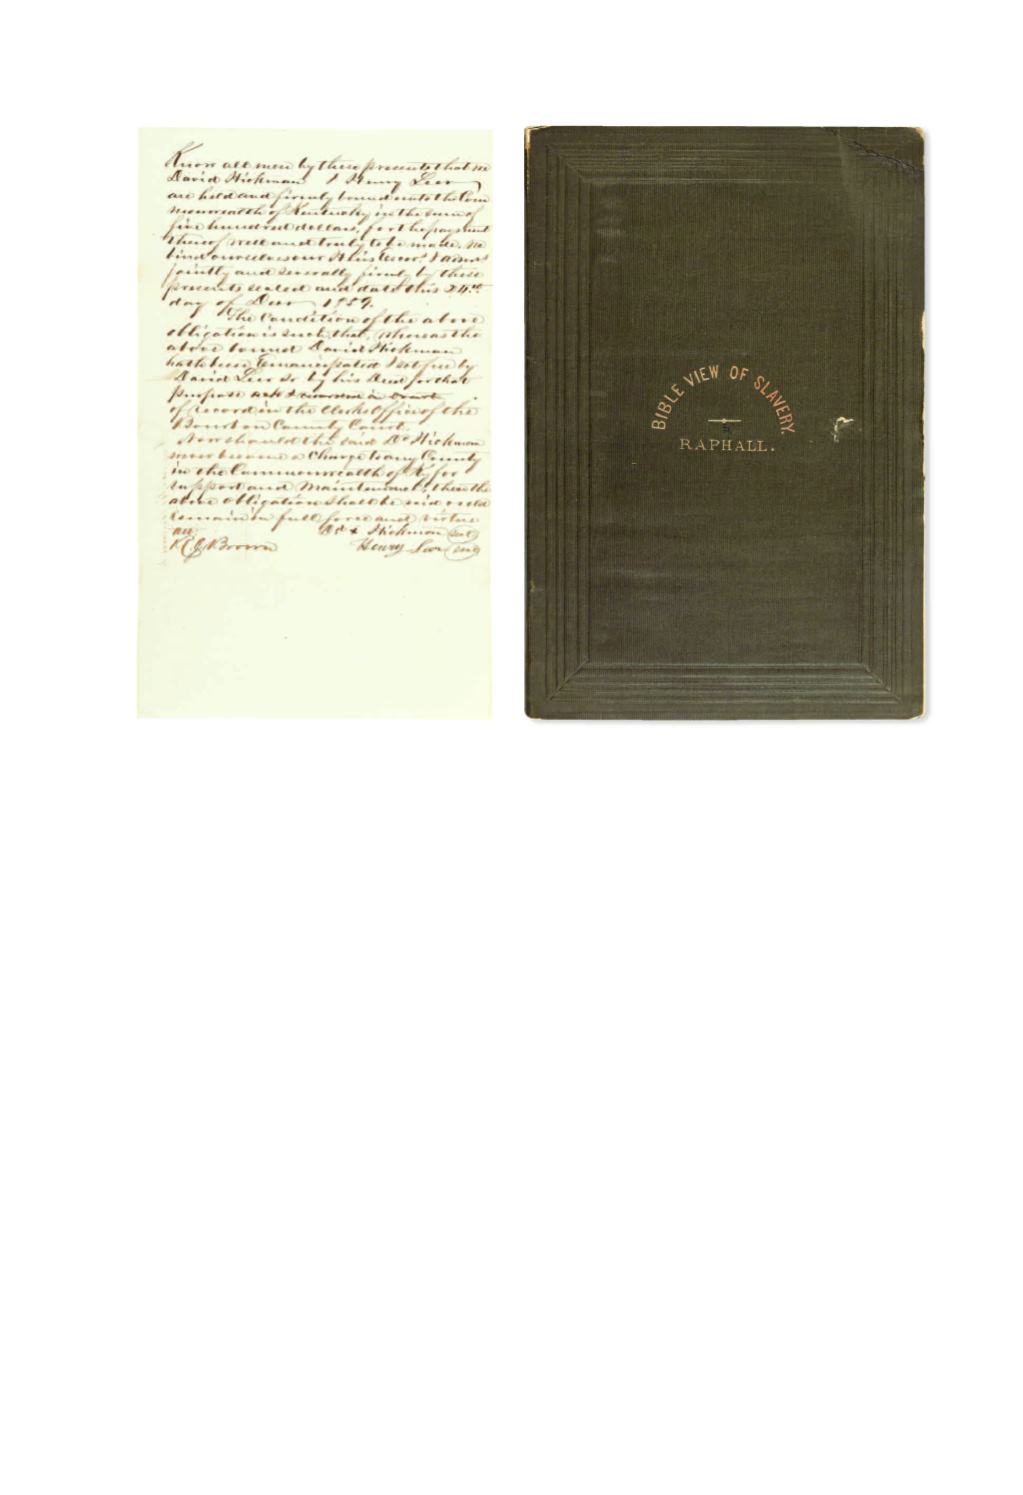 Know all men by these presents that we
David Hickman & Henry Leer
are held and firmly bound unto the Com
monwealth of Kentucky in the sum of
five hundred dollars, for the payment
thereof well and truly to be made, we
bind ourselves our
jointly and severally firmly by these
presents sealed and dated this 24th
day of Decr 1859.
The Condition of the above
obligation is such that, whereas the
above bound David Hickman
hath been Emancipated & set free by
David Leer Sr by his Deed for that
purpose
of record in the Clerks Office of the
Bourbon County Court.
Now should the said Dd Hickman
ever become a Charge to any County
in the Commonwealth of Ky for
support and Maintenance, then the
above obligation shall be void or else
remain in full force and virtue
Dd x Hickman seal
Brown Henry Leer seal
BIBLE VIEW OF SLAVERY.
RAPHALL.